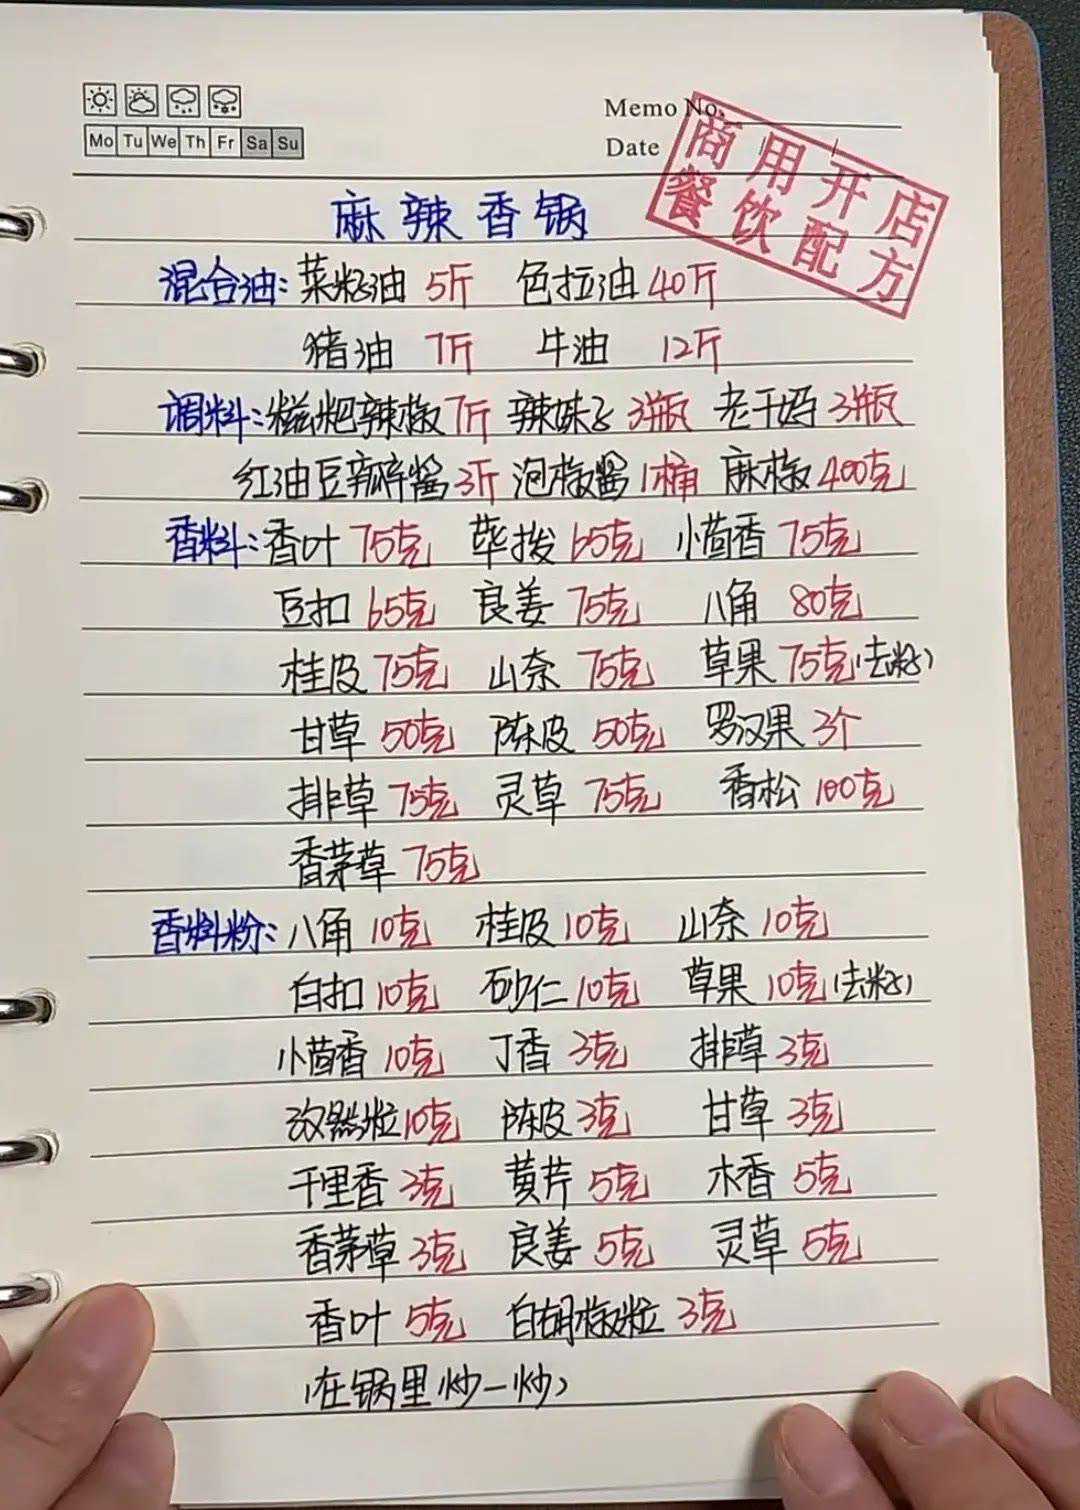 Memo No.
Mo Tu We Th Fr Sa Su
Date / /
商用开店
餐饮配方
麻辣香锅
混合油:菜籽油 5斤 色拉油 40斤
猪油 7斤 牛油 12斤
调料:糍粑辣椒 7斤 辣妹子 3瓶 老干妈 3瓶
红油豆瓣酱 3斤 泡椒酱 1桶 麻椒 400克
香料:香叶 75克 荜拨 65克 小茴香 75克
豆扣 65克 良姜 75克 八角 80克
桂皮 75克 山奈 75克 草果 75克(去籽)
甘草 50克 陈皮 50克 罗汉果 3个
排草 75克 灵草 75克 香松 100克
香茅草 75克
香料粉:八角 10克 桂皮 10克 山奈 10克
白扣 10克 砂仁 10克 草果 10克(去籽)
小茴香 10克 丁香 3克 排草 3克
孜然粒 10克 陈皮 3克 甘草 3克
千里香 3克 黄芹 5克 木香 5克
香茅草 3克 良姜 5克 灵草 5克
香叶 5克 白胡椒粒 3克
(在锅里炒一炒)